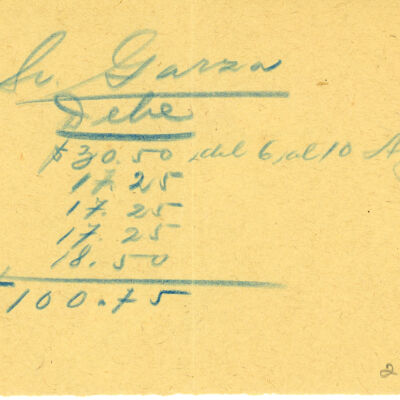 Sr. Garza
Debe
$30.50 del 6 al 10 Ag
17.25
17.25
17.25
18.50
100.75
2